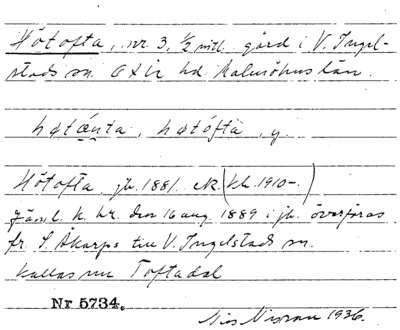 Hötofta, nr. 3, 1/2 mtl. gård i V. Ingel-
stads sn. Oxie hd. Malmöhus län.
høtǫ́fta, y.
Hötofta jb. 1881. ek. (kb. 1910-.)
Jäml. k. br. den 16 aug. 1889 i jb. överföras
fr. S. Åkarps till V. Ingelstads sn.
kallas nu Toftadal
Nr 5734.
Nils Nilsson 1936.